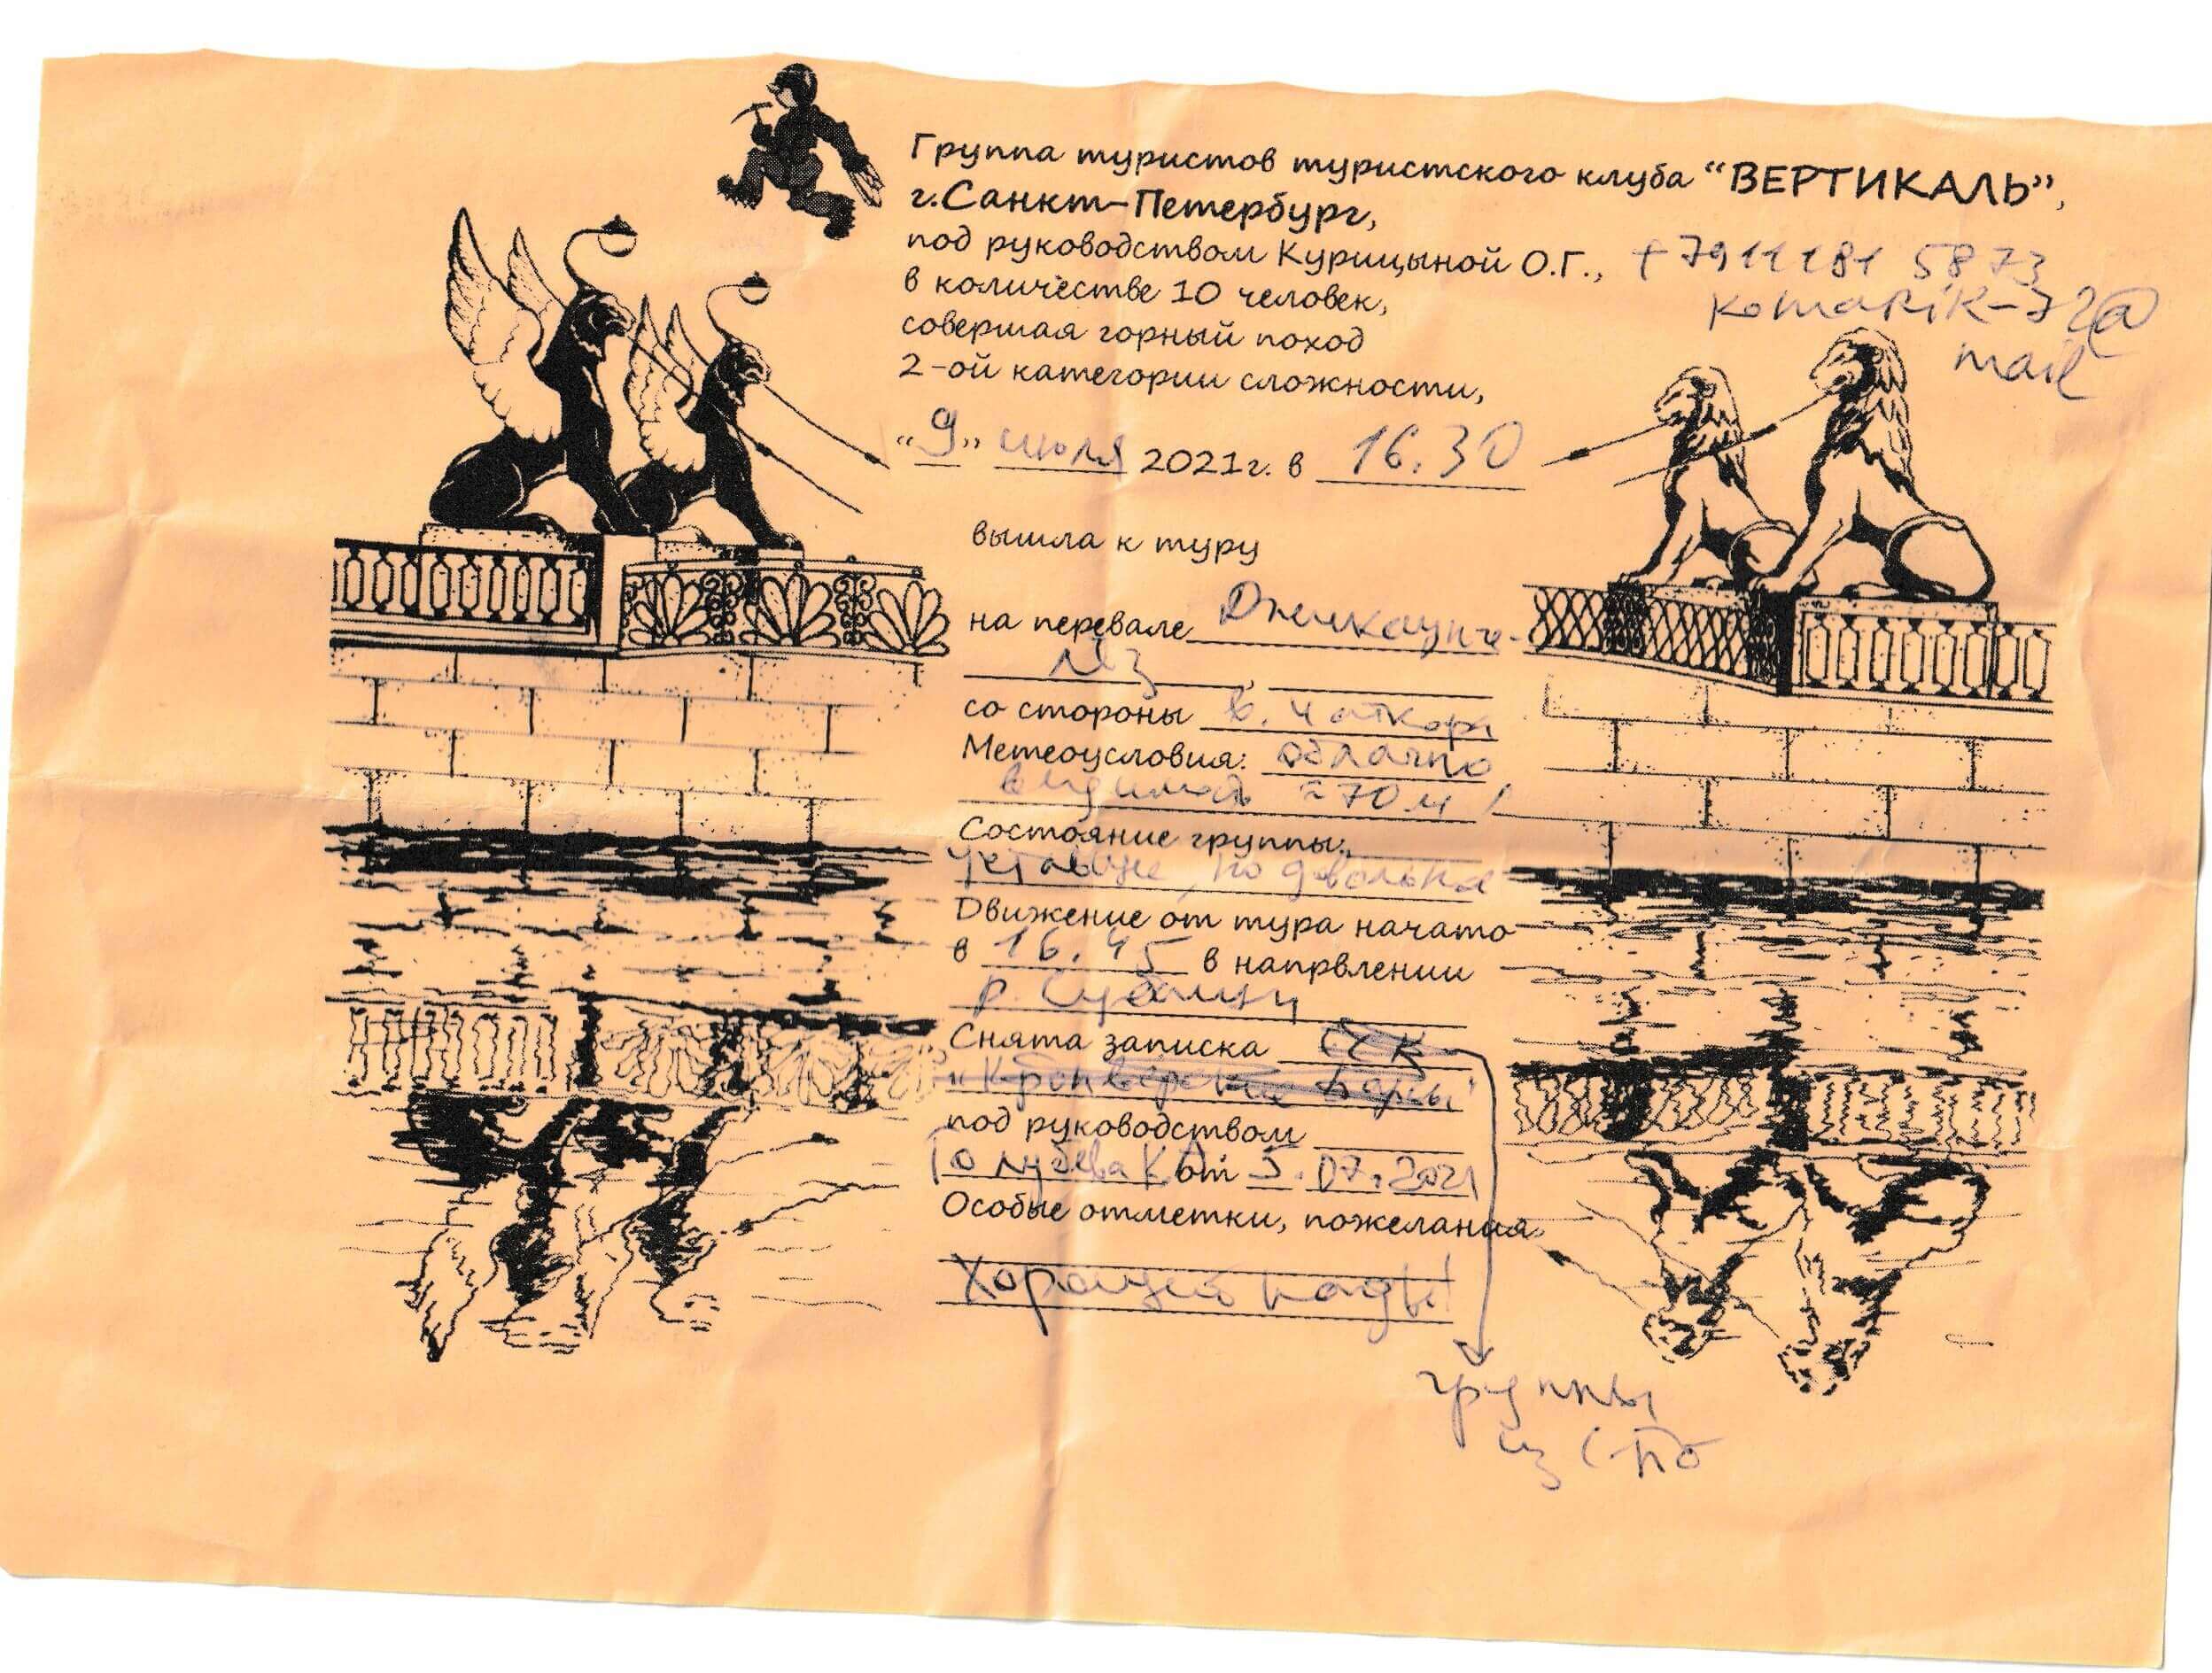 Группа туристов туристского клуба “ВЕРТИКАЛЬ”,
г.Санкт-Петербург,
под руководством Курицыной О.Г., +7911181 5873
в количестве 10 человек, komarik-72@
совершая горный поход mail
2-ой категории сложности,
“9” июля 2021г. в 16.30
вышла к туру
на перевале
со стороны в.
Метеоусловия: облачно
видимость ≈70 м
Состояние группы:
уставшие, но довольные
Движение от тура начато
в 16.45 в напрвлении
р.
Снята записка
"Кронверкские барсы"
под руководством
Голубева К от 5.07.2021
Особые отметки, пожелания
Хорошей погоды!
группы
из СПб